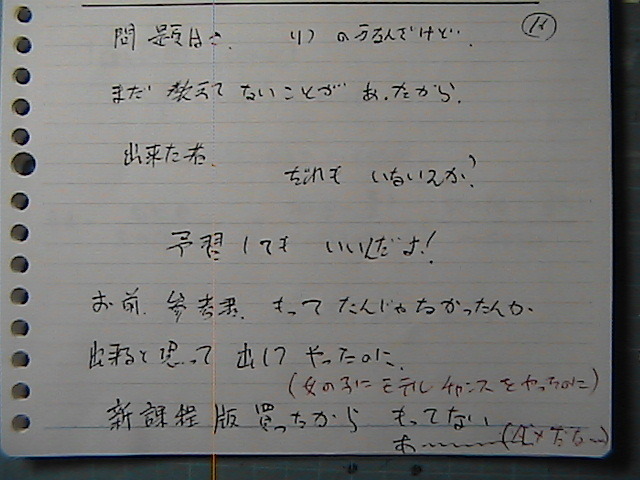 問題はこ. リ) のうるんだけど.
まだ 教えて ないことが あったから.
出来た者. だれも いないんか?
予習しても いいんだよ!
お前. 参考書. もって たんじゃなかったんか
出来ると思って 出して やったのに.
(女の子に モテル チャンスを やったのに)
新課程版 買ったから もってない
あ…………